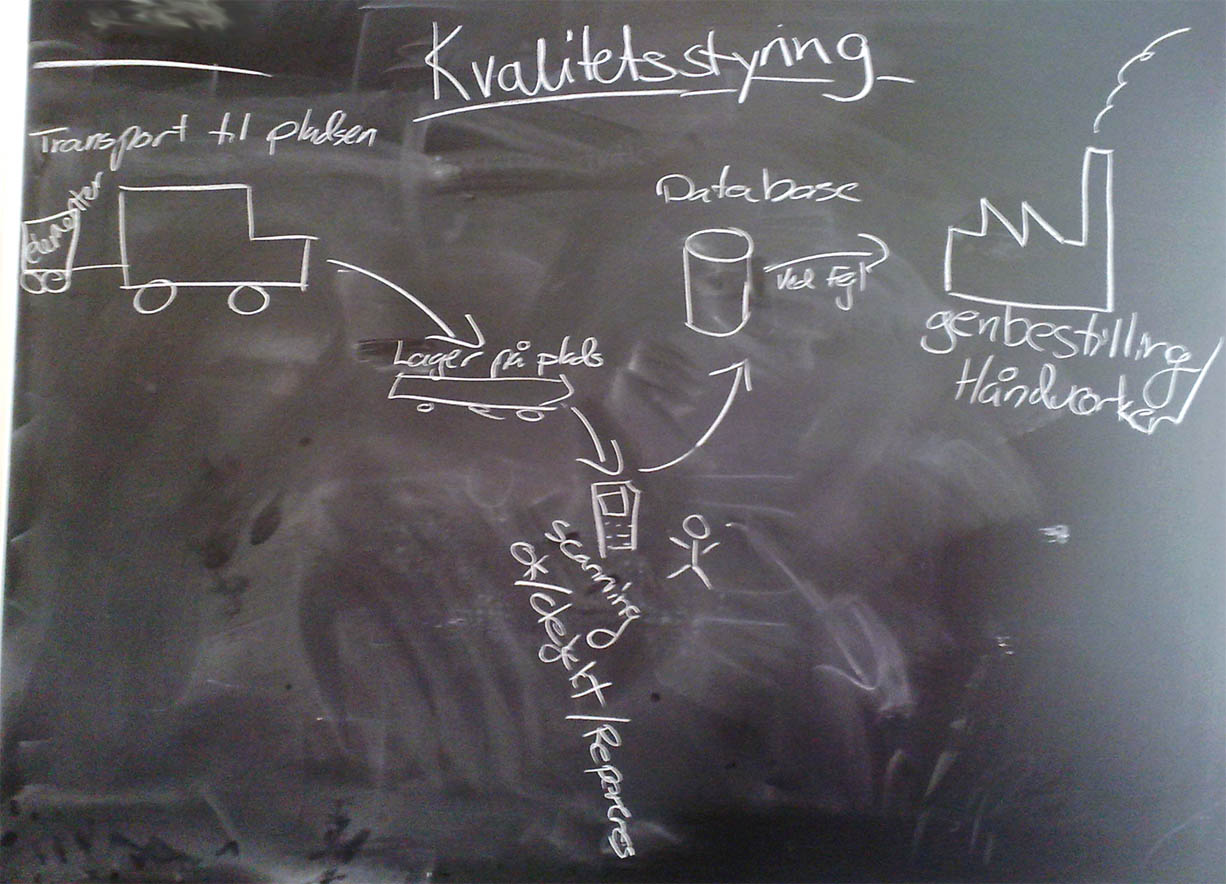 Kvalitetsstyring
Transport til pladsen
elementer
Database
Ved Fejl
genbestilling/
Håndværker
Lager på plads
scanning
ok/defekt/Reperres